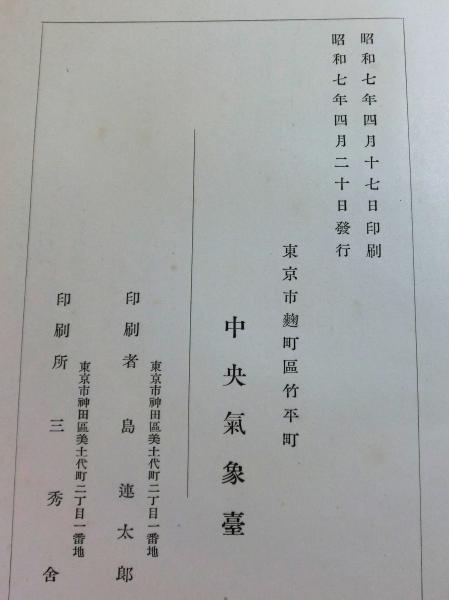 昭和七年四月十七日印刷
昭和七年四月二十日發行
東京市麴町區竹平町
中央氣象臺
東京市神田區美土代町二丁目一番地
印刷者 島連太郎
東京市神田區美土代町二丁目一番地
印刷所 三秀舍